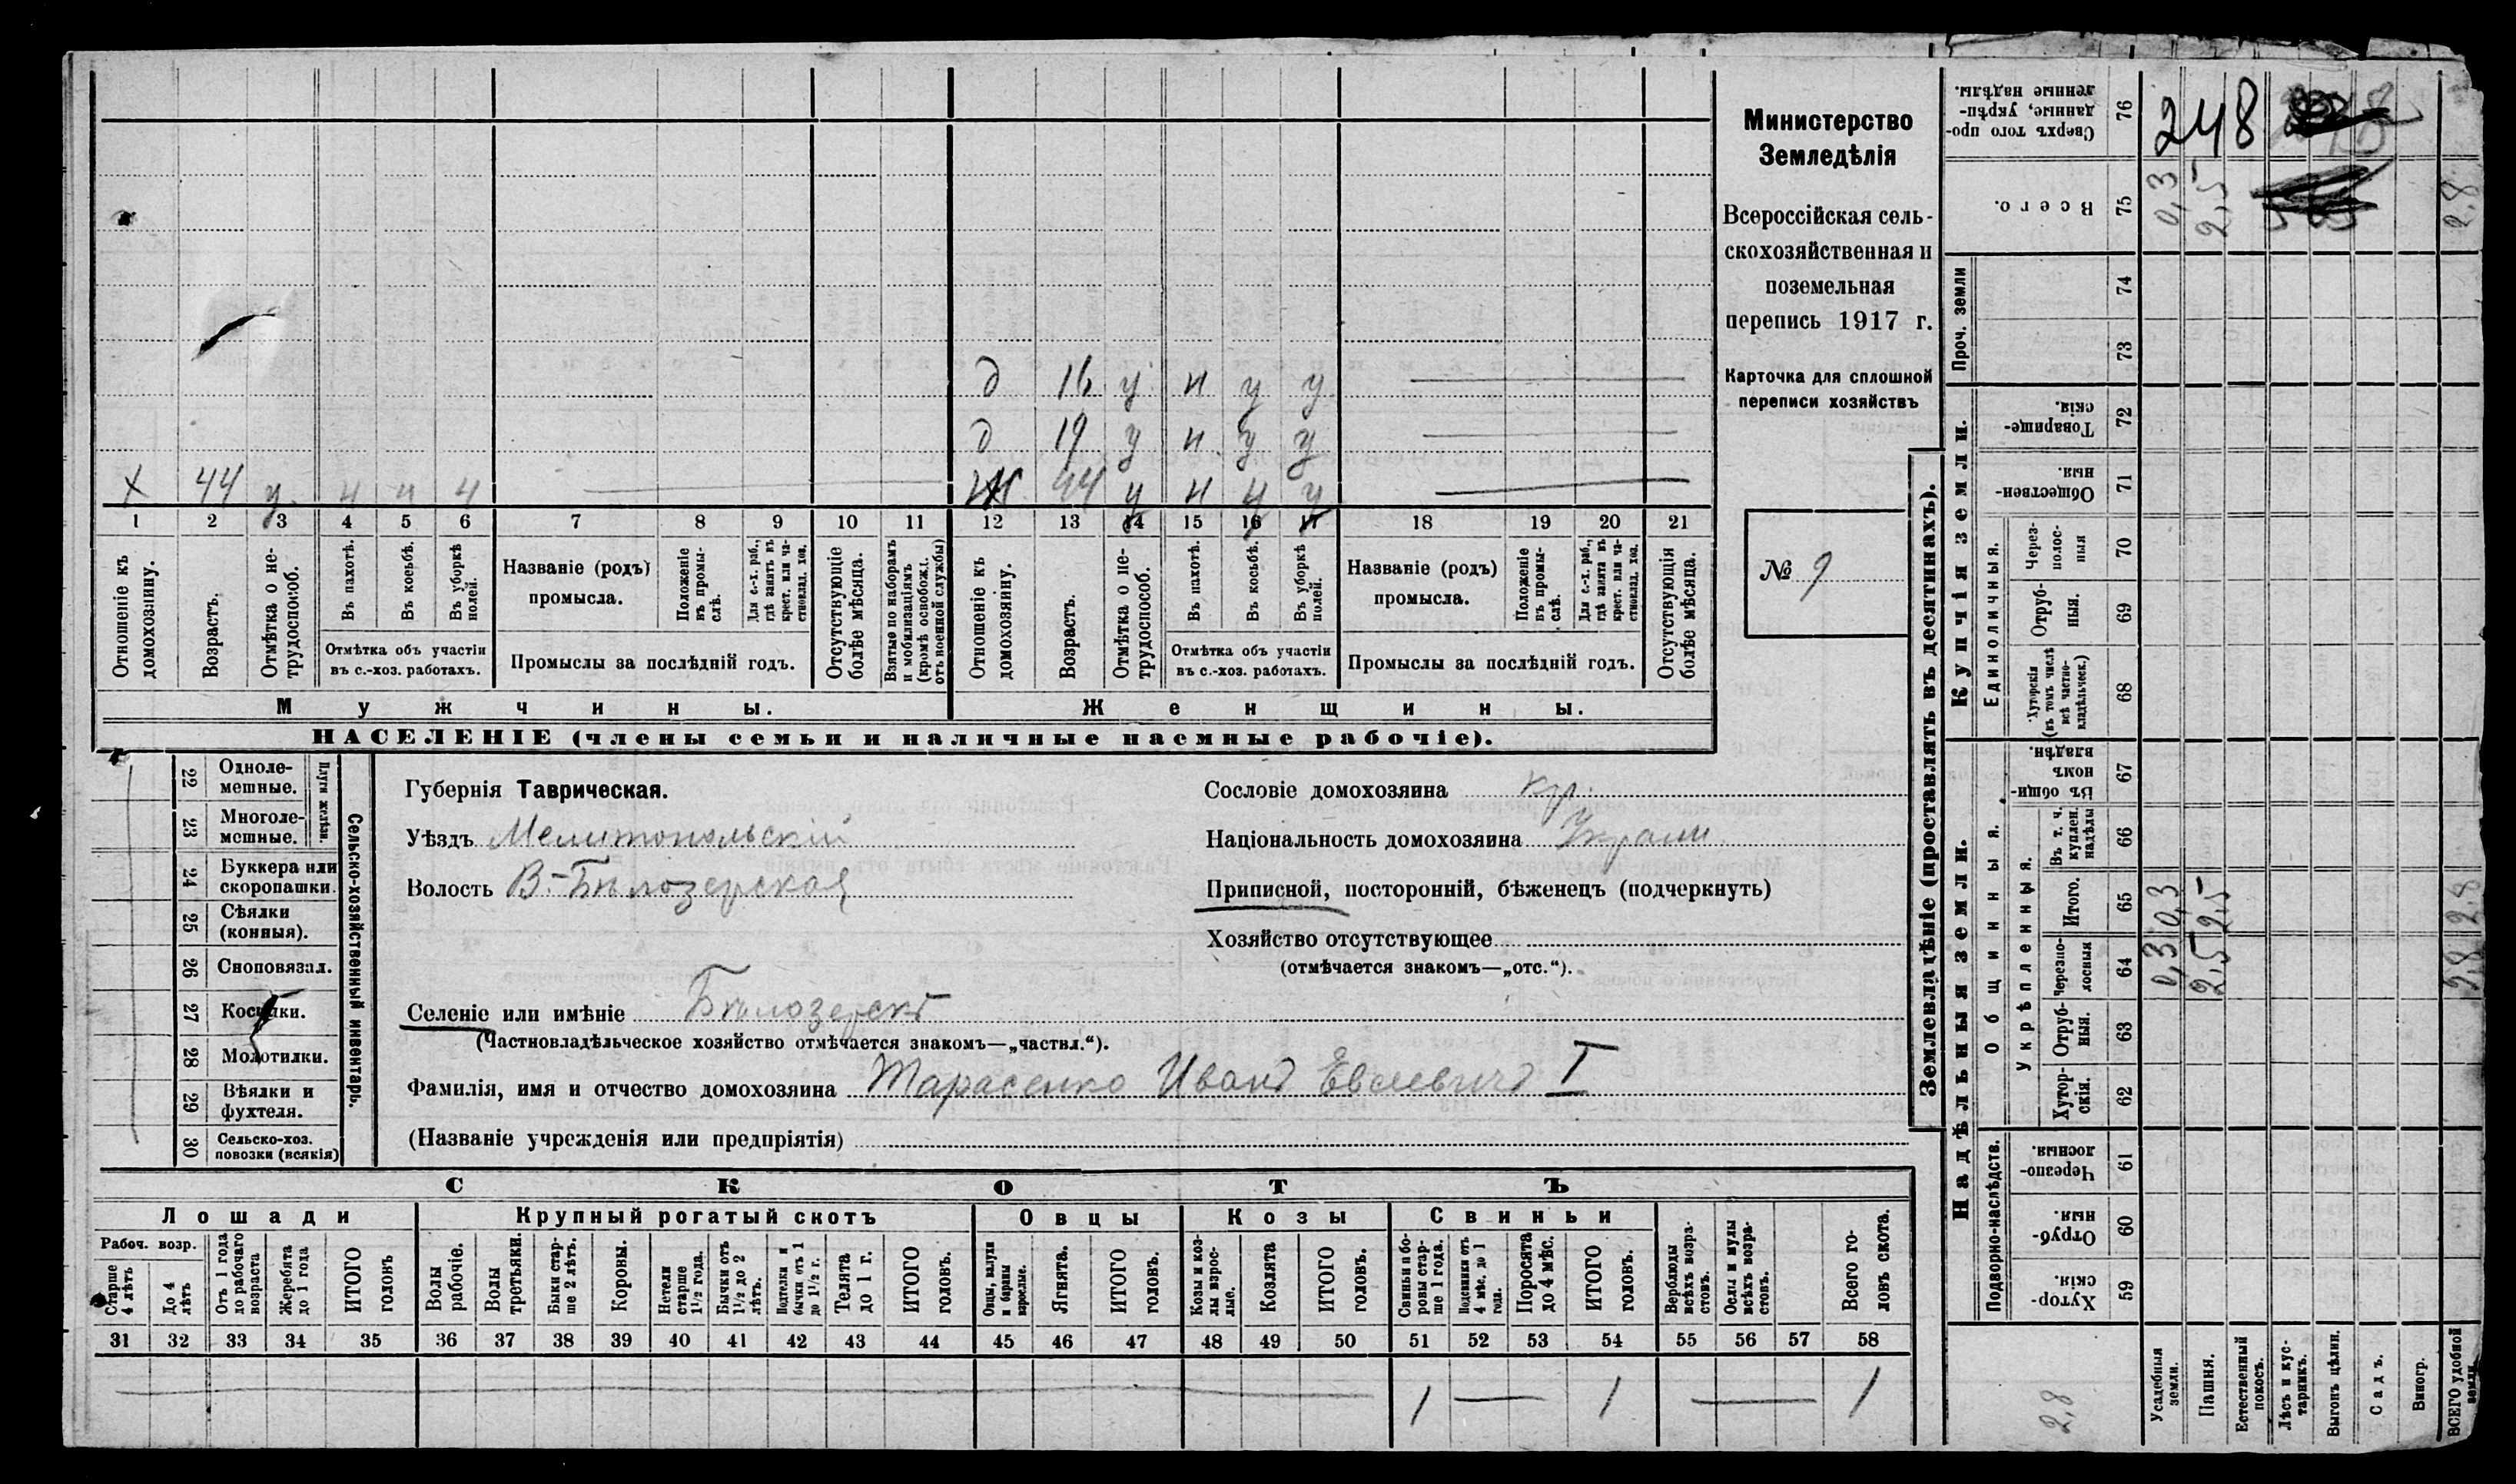 Министерство
Земледѣлія
Всероссійская сель-
скохозяйственная и
поземельная
перепись 1917 г.
Карточка для сплошной
переписи хозяйствъ
№ 9
д 16 у н у у
д 19 у н у у
х 44 у ч ч ч
Ж 44 у н у у
1 2 3 4 5 6 7 8 9 10 11 12 13 14 15 16 17 18 19 20 21
Отношеніе къ домохозяину.
Возрастъ.
Отмѣтка о не-трудоспособ.
Въ пахотѣ.
Въ косьбѣ.
Въ уборкѣ полей.
Отмѣтка объ участіи
въ с.-хоз. работахъ.
Названіе (родъ)
промысла.
Положеніе въ промы-слѣ.
Для с.-х. раб., гдѣ занятъ въ крест. или ча-стновлад. хоз.
Промыслы за послѣдній годъ.
Отсутствующіе болѣе мѣсяца.
Взятые по наборамъ и мобилизаціямъ (кромѣ освобожд. отъ военной службы)
Отношеніе къ домохозяину.
Возрастъ.
Отмѣтка о не-трудоспособ.
Въ пахотѣ.
Въ косьбѣ.
Въ уборкѣ полей.
Отмѣтка объ участіи
въ с.-хоз. работахъ.
Названіе (родъ)
промысла.
Положеніе въ промы-слѣ.
Для с.-х. раб., гдѣ занята въ крест. или ча-стновлад. хоз.
Промыслы за послѣдній годъ.
Отсутствующія болѣе мѣсяца.
Мужчины.
Женщины.
НАСЕЛЕНІЕ (члены семьи и наличные наемные рабочіе).
22 Одноле-мешные.
23 Многоле-мешные.
Плуги желѣзн.
24 Буккера или скоропашки.
25 Сѣялки (конныя).
26 Сноповязал.
27 Косилки.
28 Молотилки.
29 Вѣялки и фухтеля.
30 Сельско-хоз. повозки (всякія)
Сельско-хозяйственный инвентарь.
Губернія Таврическая.
Уѣздъ Мелитопольскій
Волость В.-Бѣлозерская
Сословіе домохозяина кр.
Національность домохозяина Украин.
Приписной, посторонній, бѣженецъ (подчеркнуть)
Хозяйство отсутствующее
(отмѣчается знакомъ—„отс.“).
Селеніе или имѣніе Бѣлозерскъ
(Частновладѣльческое хозяйство отмѣчается знакомъ—„частвл.“).
Фамилія, имя и отчество домохозяина Тарасенко Иванъ I
(Названіе учрежденія или предпріятія)
СКОТЪ
Лошади
Крупный рогатый скотъ
Овцы
Козы
Свиньи
Рабоч. возр.
Старше 4 лѣтъ
До 4 лѣтъ
Отъ 1 года до рабочаго возраста
Жеребята до 1 года
ИТОГО головъ
Волы рабочіе.
Волы третьяки.
Быки стар-ше 2 лѣтъ.
Коровы.
Нетели старше 1½ года.
Бычки отъ 1½ до 2 лѣтъ.
Телки и бычки отъ 1 до 1½ г.
Телята до 1 г.
ИТОГО головъ.
Овцы, валухи и бараны взрослые.
Ягнята.
ИТОГО головъ.
Козы и коз-лы взрос-лые.
Козлята
ИТОГО головъ.
Свиньи и бо-ровы стар-ше 1 года.
Подсвинки отъ 4 мѣс. до 1 года.
Поросята до 4 мѣс.
ИТОГО головъ.
Верблюды всѣхъ возра-стовъ.
Ослы и мулы всѣхъ возра-стовъ.
Всего го-ловъ скота.
31 32 33 34 35 36 37 38 39 40 41 42 43 44 45 46 47 48 49 50 51 52 53 54 55 56 57 58
1 — 1 — 1
Землевладѣніе (проставлять въ десятинахъ).
Надѣльныя земли.
Купчія земли.
Проч. земли
Подворно-наслѣдств.
Общинныя.
Укрѣпленныя.
Единоличныя.
Сверхъ того про-данные, укрѣп-ленные надѣлы. 76
Всего. 75
74
73
Товарище-скія. 72
Обществен-ныя. 71
Через-полос-ныя 70
Отруб-ныя. 69
Хуторскія (въ томъ числѣ всѣ частно-владѣльческ.) 68
Въ общин-номъ владѣн. 67
Въ т. ч. куплен. надѣлы 66
Итого. 65
Черезпо-лосныя 64
Отруб-ныя. 63
Хутор-скія. 62
Черезпо-лосныя. 61
Отруб-ныя. 60
Хутор-скія. 59
248
0,3 2,5 2,8
0,3 2,5 2,8
0,3 2,5 2,8
2,8
Усадебныя земли.
Пашня.
Естественный покосъ.
Лѣсъ и кус-тарникъ.
Выгонъ цѣлин.
Садъ.
Виногр.
ВСЕГО удобной земли.